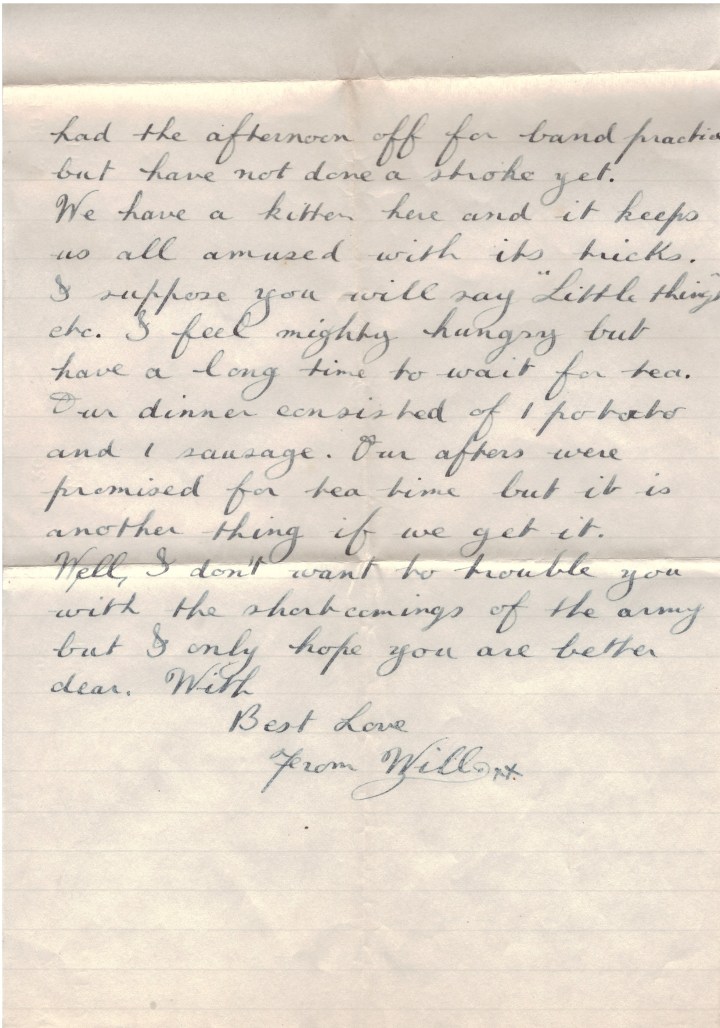 had the afternoon off for band practic
but have not done a stroke yet.
We have a kitten here and it keeps
us all amused with its tricks.
I suppose you will say "Little things"
etc. I feel mighty hungry but
have a long time to wait for tea.
Our dinner consisted of 1 potato
and 1 sausage. Our afters were
promised for tea time but it is
another thing if we get it.
Well, I don't want to trouble you
with the shortcomings of the army
but I only hope you are better
dear. With
Best Love
From Will